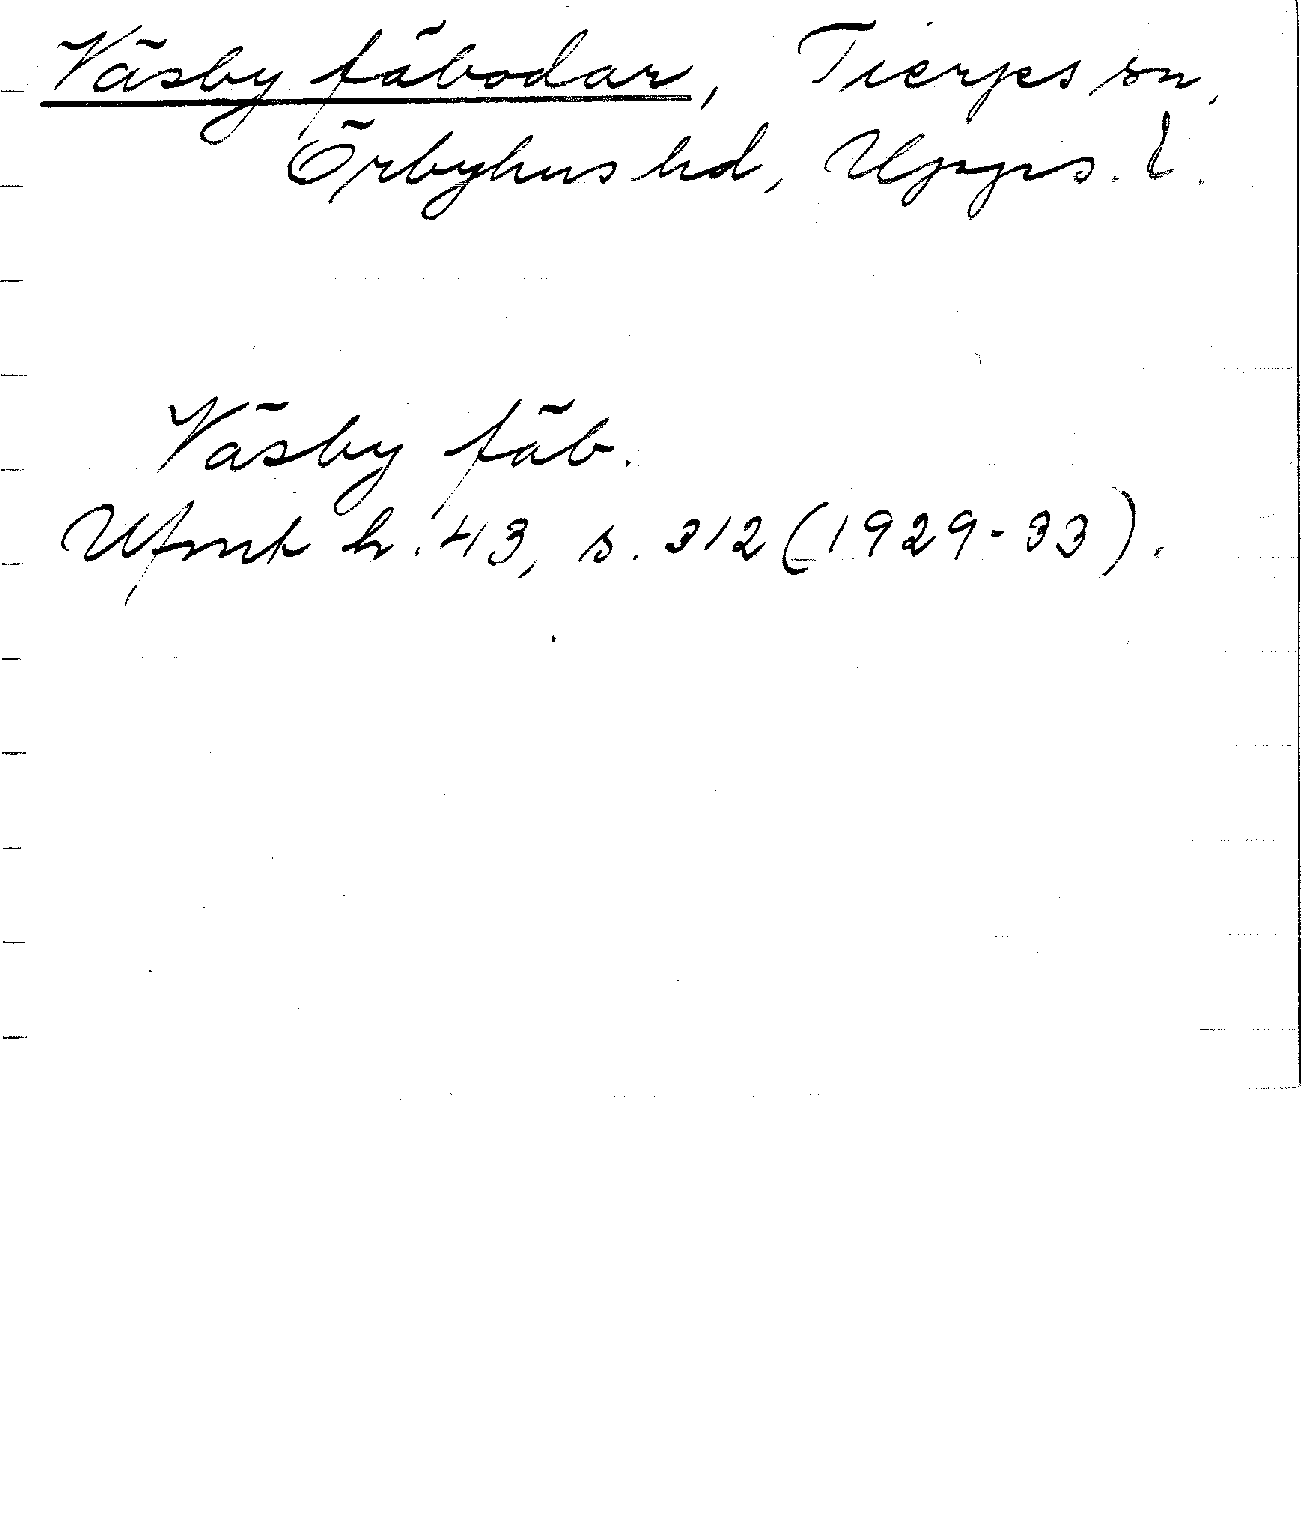 Väsby fäbodar, Tierps sn,
Örbyhus hd, Upps. l.
Väsby fäb.
Ufmt h. 43, s. 312 (1929-33).